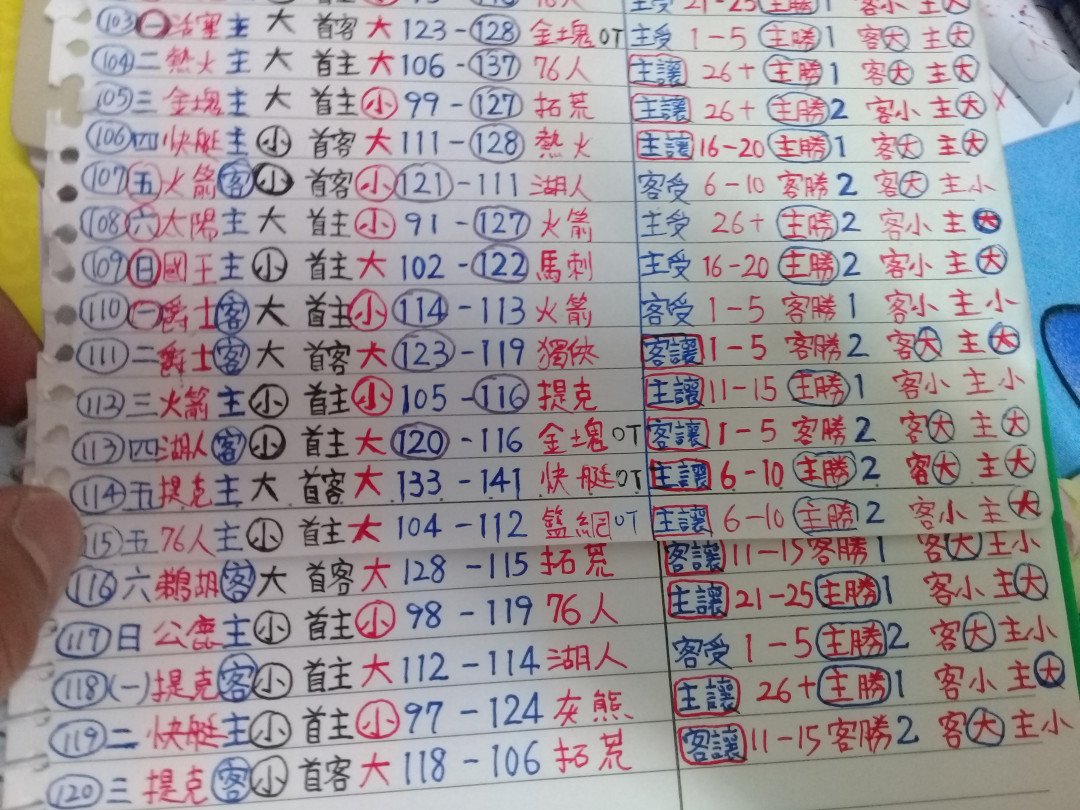 76人 主受 21-25 主勝 1 客小 主大
103 一 活塞 主 大 首客 大 123-128 金塊 OT 主受 1-5 主勝 1 客大 主大
104 二 熱火 主 大 首主 大 106-137 76人 主讓 26+ 主勝 1 客大 主大
105 三 金塊 主 大 首主 小 99-127 拓荒 主讓 26+ 主勝 2 客小 主大 x
106 四 快艇 主 小 首客 大 111-128 熱火 主讓 16-20 主勝 1 客大 主大
107 五 火箭 客 小 首客 小 121-111 湖人 客受 6-10 客勝 2 客大 主小
108 六 太陽 主 大 首主 小 91-127 火箭 主受 26+ 主勝 2 客小 主大
109 日 國王 主 小 首主 大 102-122 馬刺 主受 16-20 主勝 2 客小 主大
110 一 爵士 客 大 首主 小 114-113 火箭 客受 1-5 客勝 1 客小 主小
111 二 爵士 客 大 首客 大 123-119 獨俠 客讓 1-5 客勝 2 客大 主大
112 三 火箭 主 小 首主 小 105-116 提克 主讓 11-15 主勝 1 客小 主小
113 四 湖人 客 小 首主 大 120-116 金塊 OT 客讓 1-5 客勝 2 客大 主大
114 五 提克 主 大 首客 大 133-141 快艇 OT 主讓 6-10 主勝 2 客大 主大
115 五 76人 主 小 首主 大 104-112 籃網 OT 主讓 6-10 主勝 2 客小 主大
116 六 鵜胡 客 大 首客 大 128-115 拓荒 客讓 11-15 客勝 1 客大 主小
117 日 公鹿 主 小 首主 小 98-119 76人 主讓 21-25 主勝 1 客小 主大
118 (一) 提克 客 小 首主 大 112-114 湖人 客受 1-5 主勝 2 客大 主小
119 二 快艇 主 小 首主 小 97-124 灰熊 主讓 26+ 主勝 1 客小 主大
120 三 提克 客 小 首客 大 118-106 拓荒 客讓 11-15 客勝 2 客大 主小